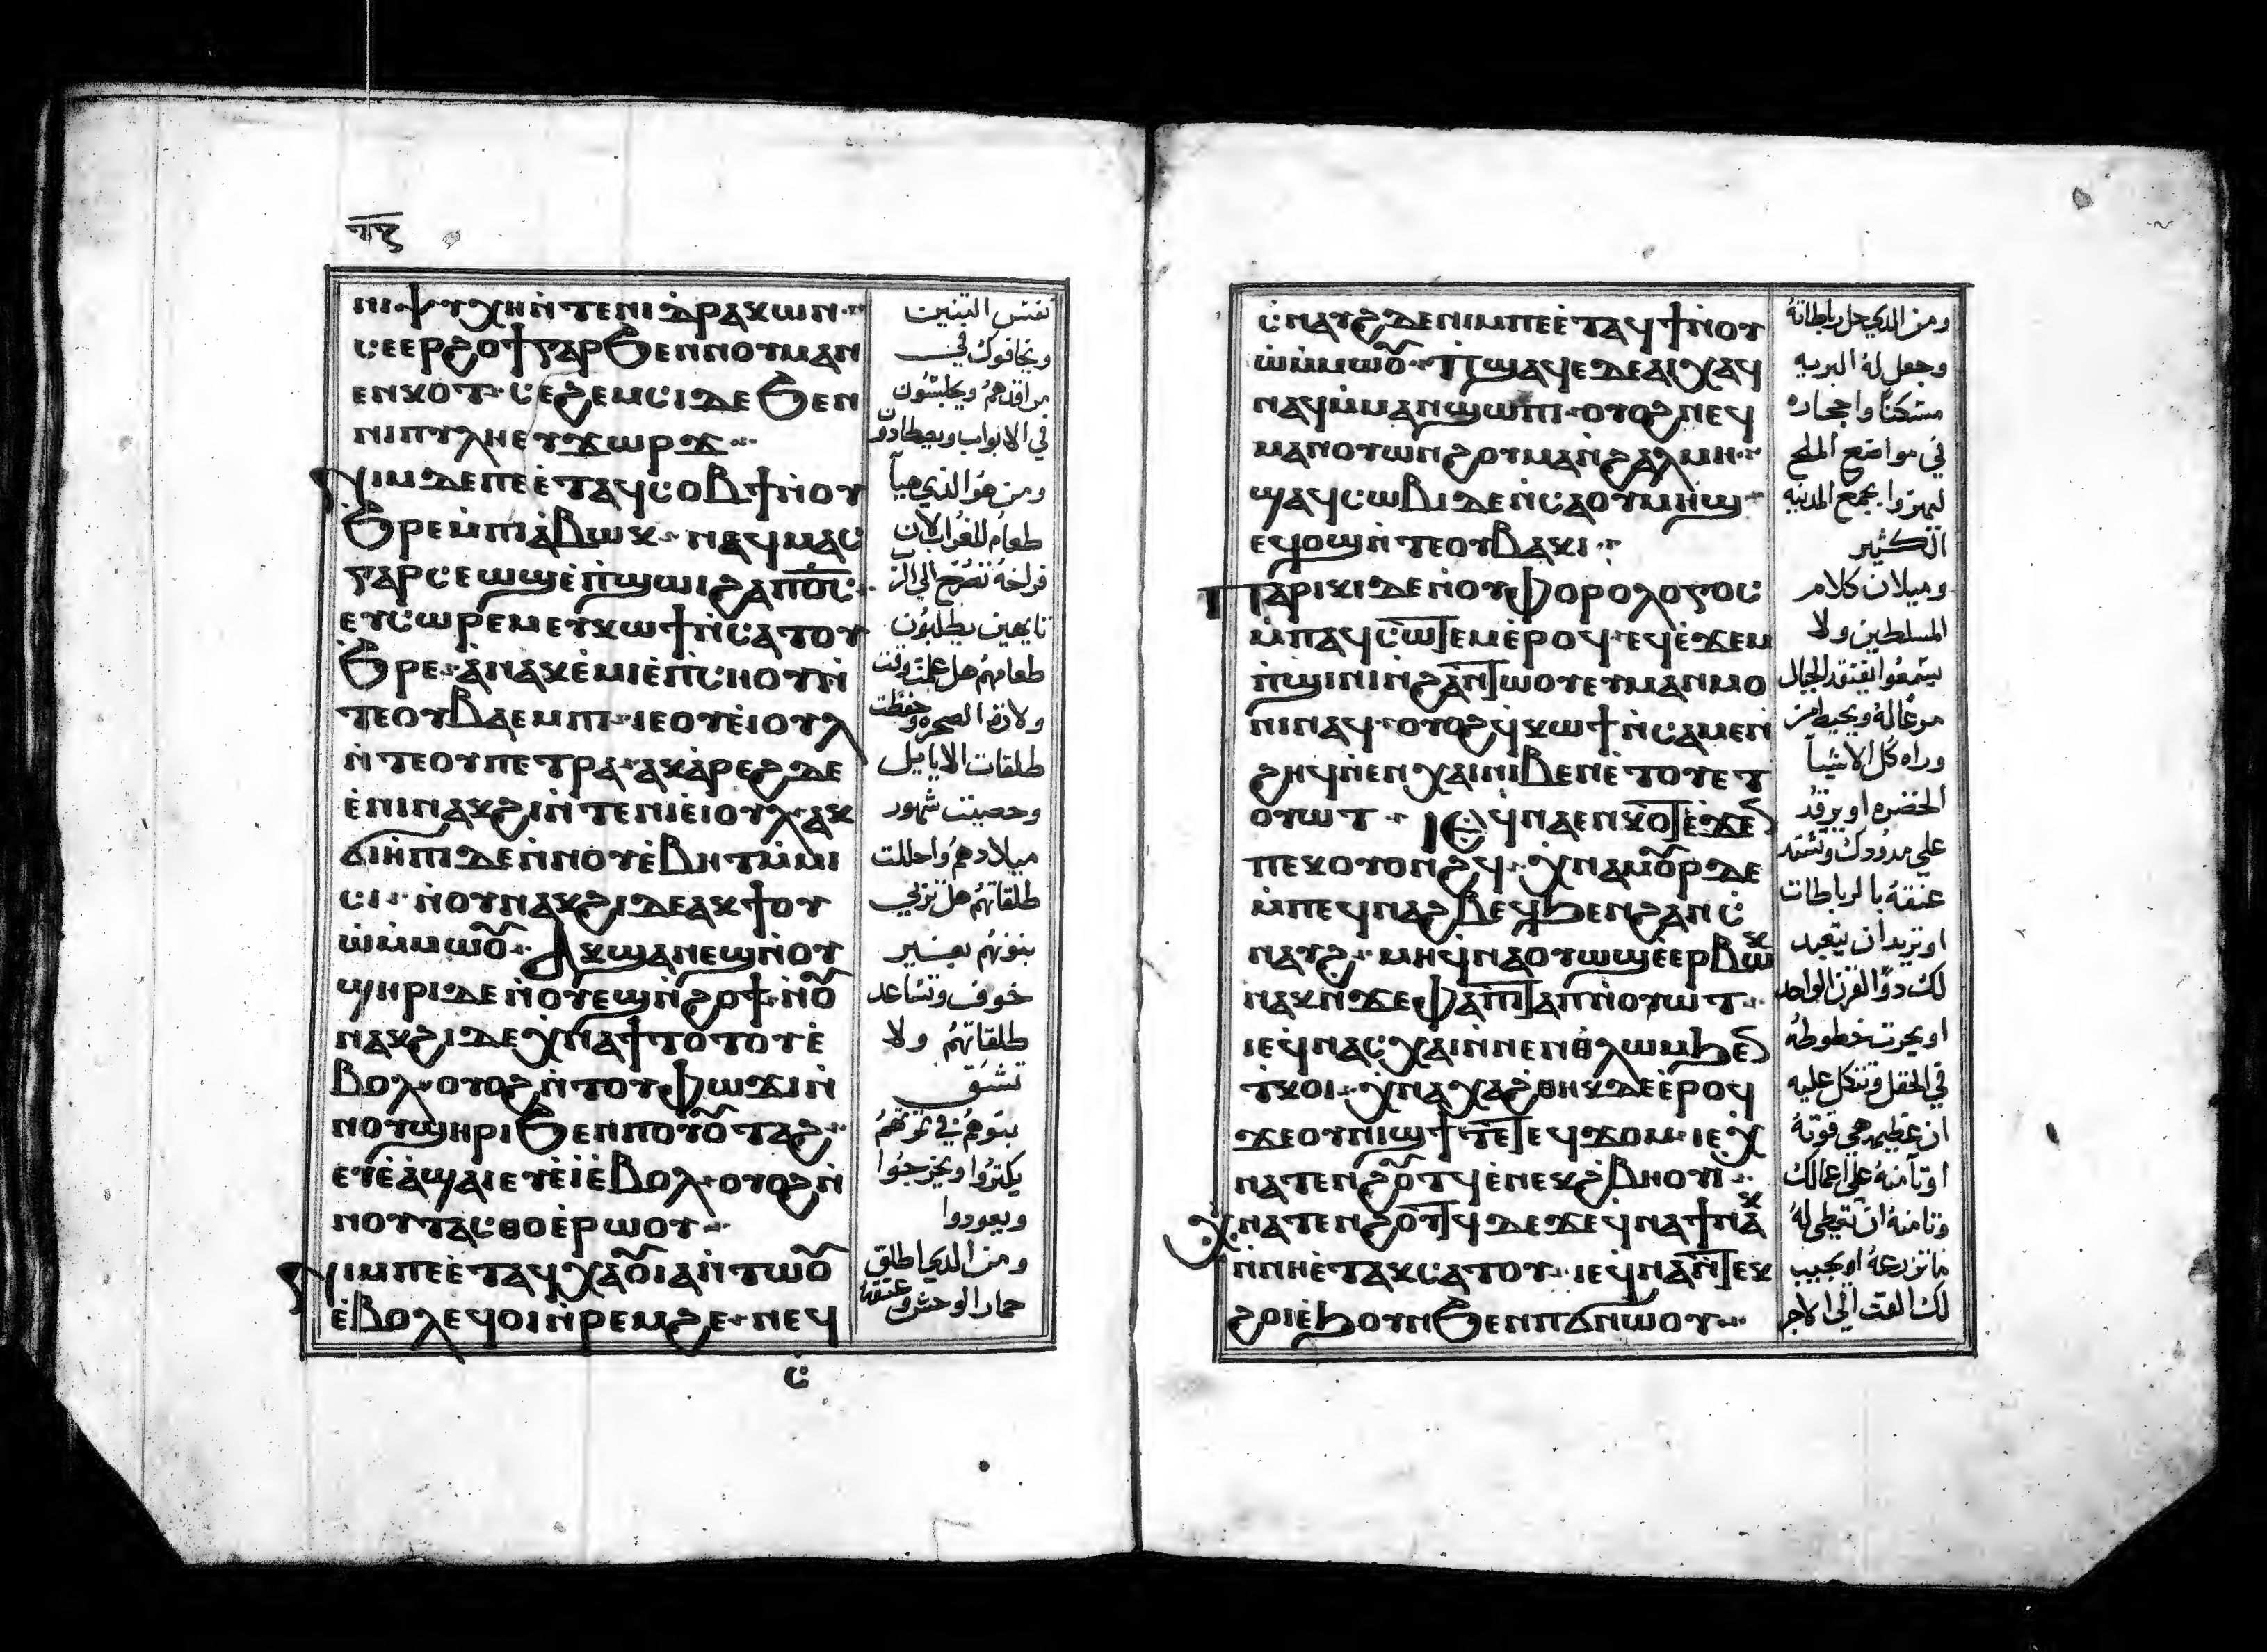 ⲛⲓⲯⲩⲭⲏ ⲛ̀ⲧⲉⲛⲓⲇ̀ⲣⲁⲕⲱⲛ
ⲥⲉⲉⲣϩⲟϯ ⲅⲁⲣ ϧⲉⲛ ⲛⲟⲩⲙⲁⲛ
ⲉⲛⲕⲟⲧ ⲥⲉϩⲉⲙⲥⲓ ⲇⲉ ϧⲉⲛ
ⲛⲓⲡⲩⲗⲏ ⲉⲩϫⲱⲣϫ
ⲛⲓⲙ ⲇⲉ ⲡⲉ ⲉ̀ⲧⲁϥⲥⲟⲃϯ ⲛ̀ⲟⲩ
ϧⲣⲉ ⲙ̀ⲡⲓⲁ̀ⲃⲱⲕ ⲛⲉϥⲙⲁⲥ
ⲅⲁⲣ ⲥⲉⲱϣ ⲉ̀ⲡ̀ϣⲱⲓ ϩⲁ ⲡⲟ̅ⲥ̅
ⲉⲩⲥⲱⲣⲉⲙ ⲉⲩⲕⲱϯ ⲛ̀ⲥⲁ ⲧⲟⲩ
ϧⲣⲉ ⲁ̀ⲛ ⲁⲕⲉ̀ⲙⲓ ⲉ̀ⲡ̀ⲥⲏⲟⲩ ⲛ̀
ⲧⲉ ⲟⲩⲃⲁⲉⲙⲡⲓ ⲓⲉ ⲟⲩⲉ̀ⲓⲟⲩⲗ
ⲛ̀ⲧⲉ ⲟⲩⲡⲉⲧⲣⲁ ⲁⲕⲁ̀ⲣⲉϩ ⲇⲉ
ⲉ̀ⲛⲓⲛⲁⲕϩⲓ ⲛ̀ⲧⲉⲛⲓⲉ̀ⲓⲟⲩⲗ ⲁⲕ
ϭⲓⲏ̀ⲡⲓ ⲇⲉ ⲛ̀ⲛⲟⲩⲉ̀ⲃⲏⲧ ⲙ̀ⲙⲓ
ⲥⲓ ⲛ̀ⲟⲩⲛⲁⲕϩⲓ ⲇⲉ ⲁⲕϯⲟⲩ
ⲱ̀ ⲙ̀ⲙⲱⲟ̅ ⲁⲕϣⲁⲛⲉϣ ⲛ̀ⲟⲩ
ϣⲏⲣⲓ ⲇⲉ ⲛ̀ⲟⲩⲉϣⲛ̀ϩⲟϯ ⲛ̀ⲟ̅
ⲛⲁⲕϩⲓ ⲇⲉ ⲭ̀ⲛⲁϯⲧⲟⲧⲟⲩ ⲉ̀
ⲃⲟⲗ ⲟⲩⲟϩ ⲛ̀ⲧⲟⲩⲫⲱϫⲓ ⲛ̀
ⲛⲟⲩϣⲏⲣⲓ ϧⲉⲛ ⲡⲟⲩⲟ̅ⲧⲁϩ
ⲉⲩⲉ̀ⲁ̀ϣⲁⲓ ⲉⲩⲉ̀ⲓ̀ ⲉ̀ⲃⲟⲗ ⲟⲩⲟϩ ⲛ̀
ⲛⲟⲩⲧⲁⲥⲑⲟ ⲉ̀ⲣⲱⲟⲩ
ⲛⲓⲙ ⲡⲉ ⲉ̀ⲧⲁϥⲭⲁ ⲟ̅ⲓⲁ̀ⲛ̀ⲧⲱⲟ̅
ⲉ̀ⲃⲟⲗ ⲉϥⲟⲓ ⲛ̀ⲣⲉⲙϩⲉ ⲛⲉϥ
ⲥ̀
نفس التنين
ويخافوك في
مراقدهم ويجلسون
في الابواب ويصطادون
ومن هوا الذي هيآ
طعام للغراب لان
فراخه تصرخ الي الرب
تايهين يطلبون
طعامهم هل علمت وقت
ولادة الصخره وحفظت
طلقات الايايل
وحصيت شهور
ميلادهم واحللت
طلقاتهم هل تربي
بنوهم بغير
خوف وتساعد
طلقاتهم ولا
تشق
بنوهم في تمرتهم
يكتروا ويخرجوا
ويعودوا
ومن الدي اطلق
حمار الوحش وعنقه
ⲥ̀ⲛⲁⲩϩ ⲇⲉ ⲛⲓⲙ ⲡⲉ ⲉ̀ⲧⲁϥϯ ⲛ̀ⲟⲩ
ⲱ̀ ⲙ̀ⲙⲱⲟ̅ ⲡ̀ϣⲁϥⲉ ⲇⲉ ⲁⲓⲭⲁϥ
ⲛⲁϥ ⲙ̀ⲙⲁⲛ̀ϣⲱⲡⲓ ⲟⲩⲟϩ ⲛⲉϥ
ⲙⲁⲛⲟⲩⲱⲛϩ ⲟⲩⲙⲁ ⲛ̀ϩⲁⲗⲙⲏ
ϣⲁϥⲥⲱⲃⲓ ⲇⲉ ⲛ̀ⲥⲁ ⲟⲩⲙⲏϣ
ⲉϥⲟϣ ⲛ̀ⲧⲉ ⲟⲩⲃⲁⲕⲓ
ⲡⲁⲣⲓⲕⲓ ⲇⲉ ⲛ̀ⲟⲩⲫⲟⲣⲟⲗⲟⲅⲟⲥ
ⲙ̀ⲡⲁϥⲥⲱⲧⲉⲙ ⲉ̀ⲣⲟϥ ⲉϥⲉ̀ϫⲉⲙ
ⲡ̀ϣⲓⲛⲓ ⲛ̀ϩⲁⲛⲧⲱⲟⲩ ⲉⲩⲙⲁⲙ̀ⲙⲟ
ⲛⲓ ⲛⲁϥ ⲟⲩⲟϩ ϥ̀ⲕⲱϯ ⲛ̀ⲥⲁⲙⲉⲛ
ϩⲏϥ ⲛ̀ⲉⲛⲭⲁⲓ ⲛⲓⲃⲉⲛ ⲉ̀ⲧⲟⲩⲉⲧ
ⲟⲩⲱⲧ ⲓⲉ ϥ̀ⲛⲁⲉⲛⲕⲟⲧ ⲉ̀ϫⲉⲛ
ⲡⲉⲕⲟⲩⲟⲛϩϥ ⲭ̀ⲛⲁⲙⲟ̅ⲣ ⲇⲉ
ⲙ̀ⲡⲉϥⲛⲁϩⲃⲉϥ ϧⲉⲛ ϩⲁⲛⲥ̀
ⲛⲁⲩϩ ⲙⲏ ϥ̀ⲛⲁⲟⲩⲱϣ ⲉ̀ⲉⲣⲃⲱⲕ
ⲛⲁⲕ ⲛ̀ϫⲉ ⲫⲁⲡⲓⲧⲁⲡ ⲛ̀ⲟⲩⲱⲧ
ⲓⲉ ϥ̀ⲛⲁⲥ̀ⲭⲁⲓ ⲛ̀ⲛⲉⲛⲑⲗⲱⲙ ϧⲉⲛ
ⲧ̀ⲕⲟⲓ ⲭ̀ⲛⲁⲭⲁϩ̀ⲑⲏⲕ ⲇⲉ ⲉ̀ⲣⲟϥ
ϫⲉ ⲟⲩⲛⲓϣϯ ⲧⲉ ⲧⲉϥϫⲟⲙ ⲓⲉ ⲭ̀
ⲛⲁⲧⲉⲛϩⲟ̅ⲧϥ ⲉ̀ⲛⲉⲕϩ̀ⲃⲏⲟⲩⲓ
ⲭ̀ⲛⲁⲧⲉⲛϩⲟⲩⲧϥ ⲇⲉ ϫⲉ ϥ̀ⲛⲁϯ ⲛⲁⲕ
ⲛ̀ⲛⲏ ⲉ̀ⲧⲁⲕⲥⲁⲧⲟⲩ ⲓⲉ ϥ̀ⲛⲁⲛ̀ⲧⲉⲕ
ϩⲟⲓ ⲉ̀ϧⲟⲩⲛ ϧⲉⲛ ⲡϭⲛⲱⲟⲩ
ومن الدي حل رباطاته
وجعل له البريه
مسكنا واحجاره
في مواضع الملح
ليهزوا بجمع المدينه
الكثير
وميلان كلام
المسلطين ولا
يسمعوا يفتقد الجبال
مرعا له ويجيه من
وراه كل الاشيا
الخضره او يرقد
علي مدودك وتشتد
عنقه بالرباطات
او يريد ان يتعبد
لك دو القرن الواحد
او يحرت خطوطه
في الحقل وتتكل عليه
ان عظيمه هي قوته
او تآمنه علي اعمالك
وتامنه ان يعطي له
ما تزرعه او يجيب